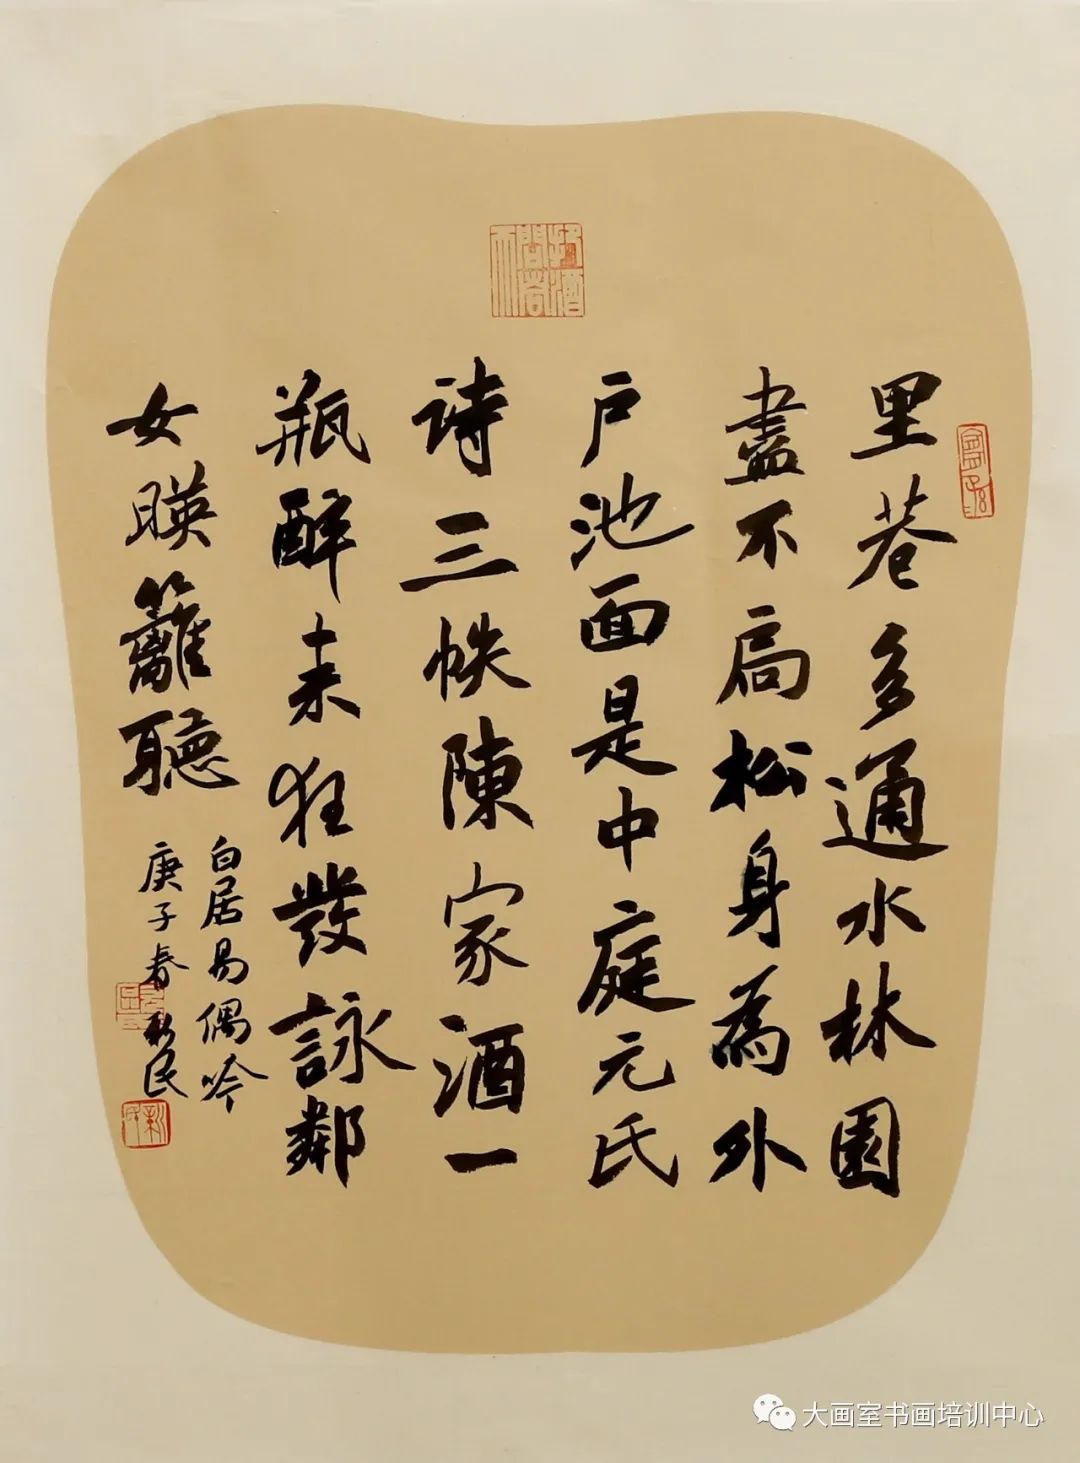 里巷多通水林園
盡不扃松身為外
戶池面是中庭元氏
诗三帙陳家酒一
瓶醉来狂發詠鄰
女暎籬聽
白居易偶吟
庚子春
大画室书画培训中心